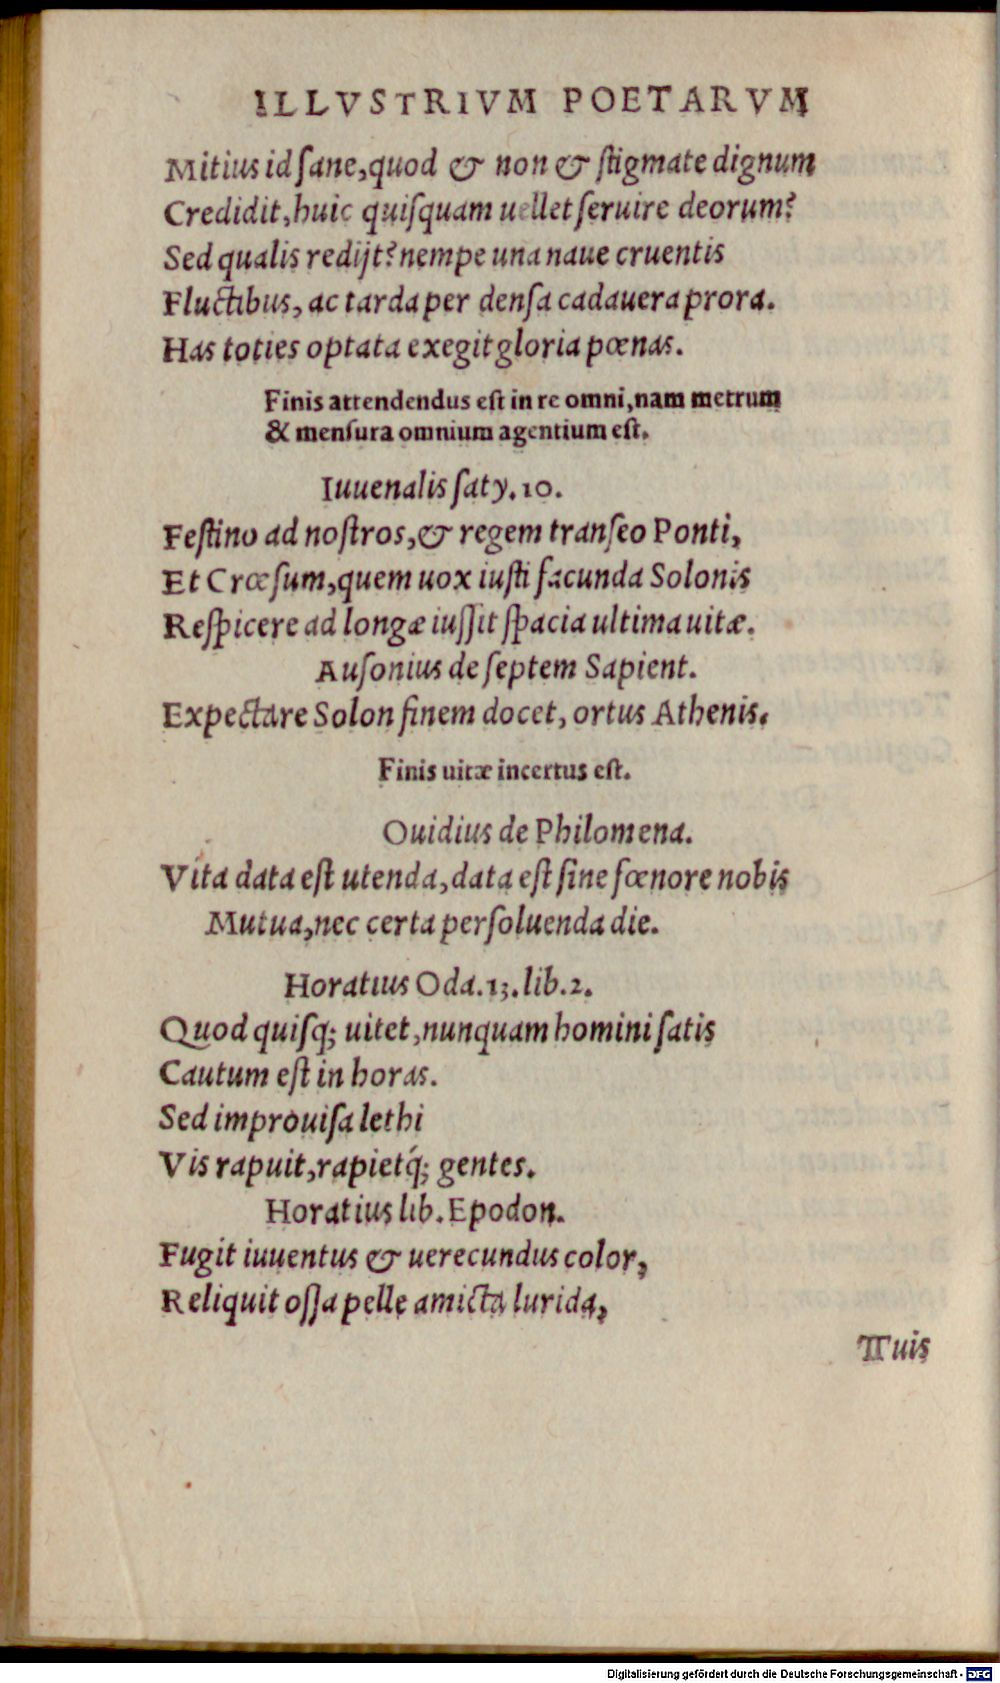 ILLVSTRIVM POETARVM
Mitius id ſane,quod & non & ſtigmate dignum
Credidit,huic quiſquam uellet ſeruire deorum?
Sed qualis redijt? nempe una naue cruentis
Fluctibus, ac tarda per denſa cadauera prora.
Has toties optata exegit gloria pœnas.
Finis attendendus eſt in re omni,nam metrum
& menſura omnium agentium eſt.
Iuuenalis ſaty.10.
Feſtino ad noſtros,& regem tranſeo Ponti,
Et Crœſum,quem uox iuſti facunda Solonis
Reſpicere ad longæ iuſſit ſpacia ultima uitæ.
Auſonius de ſeptem Sapient.
Expectare Solon finem docet, ortus Athenis.
Finis uitæ incertus eſt.
Ouidius de Philomena.
Vita data eſt utenda,data eſt ſine fœnore nobis
Mutua,nec certa perſoluenda die.
Horatius Oda.13.lib.2.
Quod quiſq; uitet,nunquam homini ſatis
Cautum eſt in horas.
Sed improuiſa lethi
Vis rapuit,rapietq́; gentes.
Horatius lib.Epodon.
Fugit iuuentus & uerecundus color,
Reliquit oſſa pelle amicta lurida,
Tuis
Digitalisierung gefördert durch die Deutsche Forschungsgemeinschaft - DFG